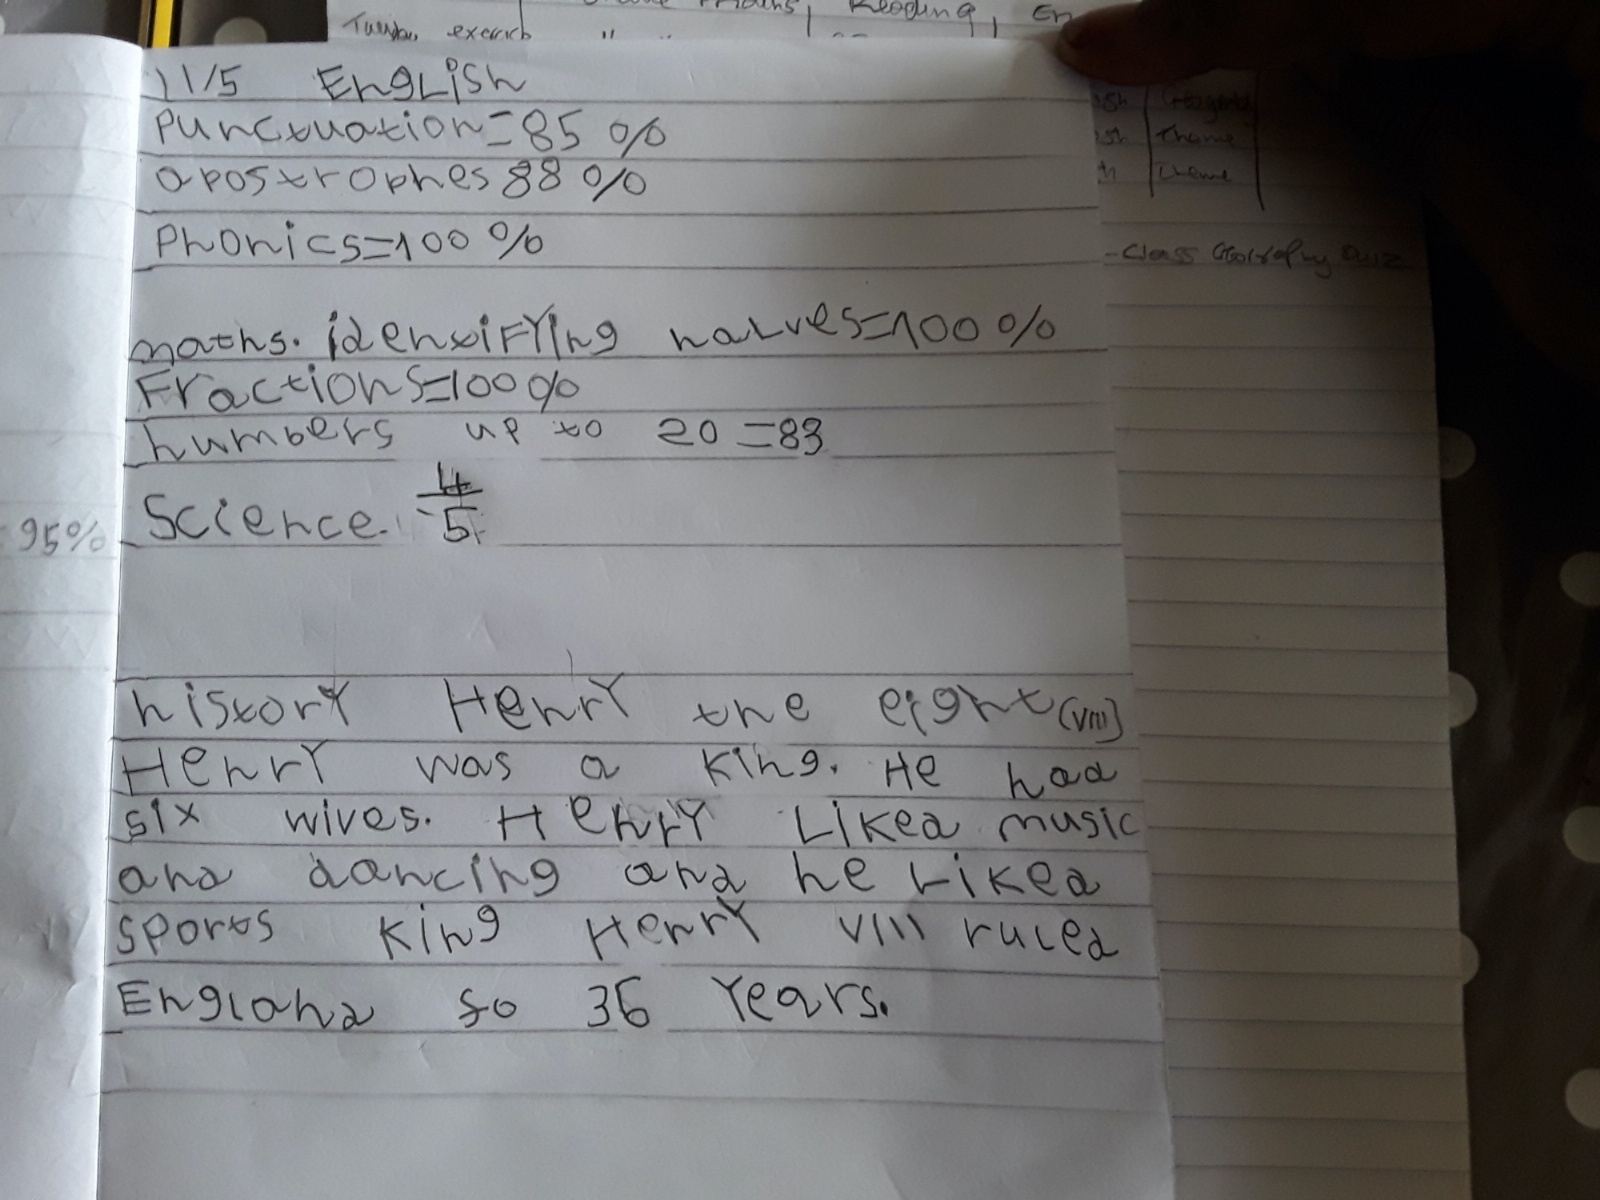 Maths, Reading, En
Tuesday exercise " "
11/5 English
Punctuation=85%
apostrophes 88%
Phonics=100%
maths. identifying halves=100%
Fractions=100%
numbers up to 20=83
Science. 4/5
95%
history Henry the eight (VIII)
Henry was a king. He had
six wives. Henry Liked music
and dancing and he Liked
sports King Henry VIII ruled
England fo 36 Years.
Theme
Theme
-Class Geography Quiz